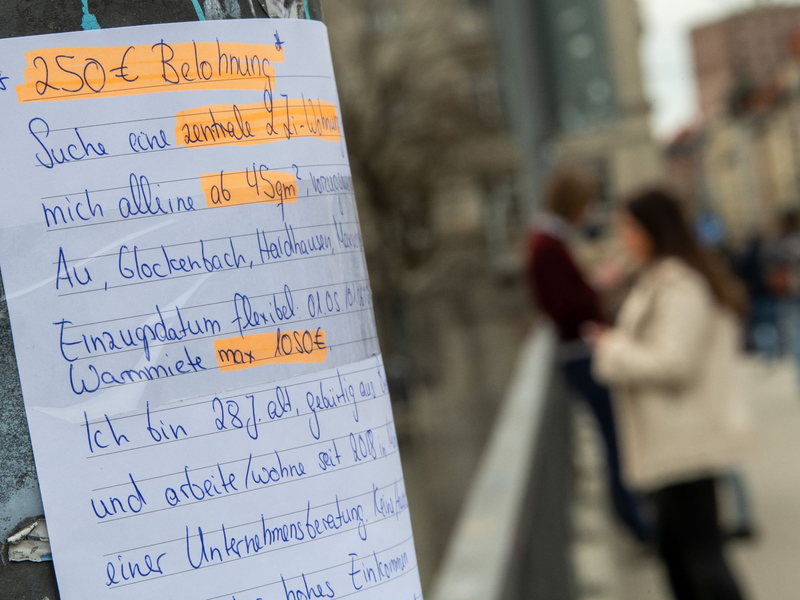 * 250€ Belohnung *
Suche eine zentrale 2 Zi-Wohnung
mich alleine ab 45qm²,
Au, Glockenbach, Haidhausen,
Einzugsdatum flexibel 01.05
Warmmiete max 1050€.
Ich bin 28J. alt, gebürtig aus
und arbeite/wohne seit 2018 in
einer Unternehmensberatung.
hohes Einkommen